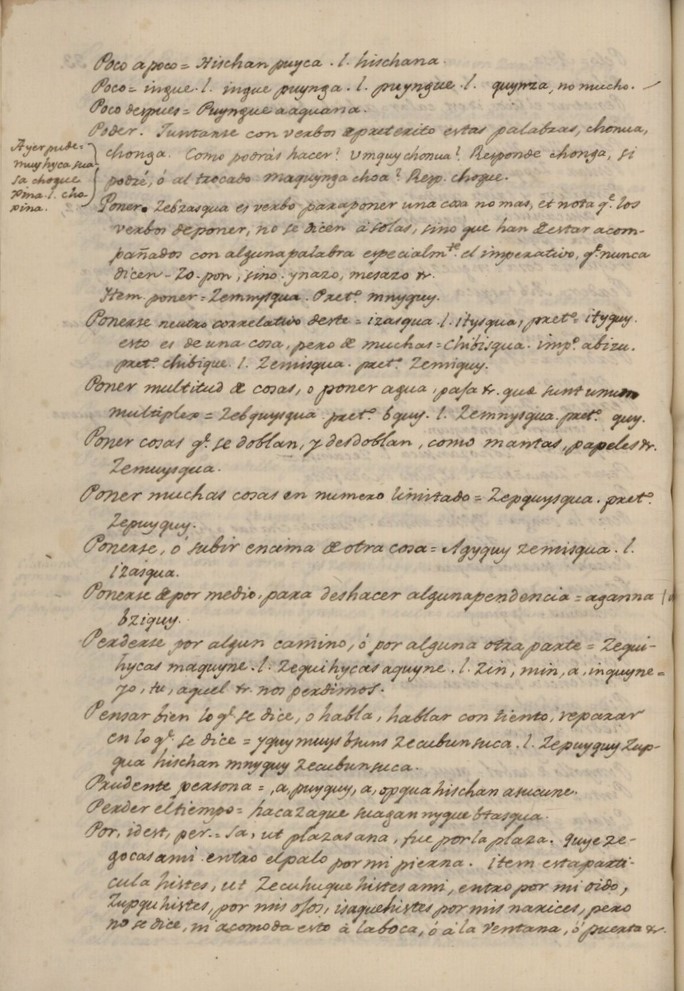 Poco a poco = Hischan puyca . l. hischana.
Poco = ingue . l. ingue puynga . l. puyngue . l. quynza, no mucho.
Poco despues = Puyngue aaquana.
Poder. Juntanse con verbos de preterito estas palabras, chonua,
chonga. Como podràs hacer? Vmquy chonua?. Responde chonga, si
podrè, ó al trocado maquynga choa? Resp. choque.
Ayer pude =
muyhyca sua
sa choque
pina. l. cho-
pina.
Poner. Zebzasqua es verbo para poner una cosa no mas, et nota q.e los
verbos de poner, no se dicen à solas, sino que han de estar acom-
pañados con alguna palabra especialm.te el imperativo, q.e nunca
dicen - Zo. pon, sino. ynazo, mesazo &.
Item poner = Zemnysqua. Pret.o mnyquy.
Ponerse neutro correlativo deste = izasqua. l. itysqua, pret.o ityquy.
esto es de una cosa, pero de muchas = Chibisqua. imp.o abizu.
pret.o chibique. l. Zemisqua. pret.o Zemiquy.
Poner multitud de cosas, o poner agua, paja &. quæ sunt unum
multiplex = Zebquysqua. pret.o bquy. l. Zemnysqua. pret.o quy.
Poner cosas q.e se doblan, y desdoblan, como mantas, papeles &.
Zemuysqua.
Poner muchas cosas en numero limitado = Zepquysqua. pret.o
Zepuyquy.
Ponerse, ó subir encima de otra cosa = Agyquy zemisqua. l.
izasqua.
Ponerse de por medio, para deshacer alguna pendencia = aganna
bziquy.
Perderse por algun camino, ó por alguna otra parte = Zequi-
hycas maquyne. l. Zequihycas aquyne. l. Zin, min, a, inquyne =
yo, tu, aquel &. nos perdimos.
Pensar bien lo q.e se dice, o habla, hablar con tiento, reparar
en lo q.e se dice = yquy muys bsuns zecubunsuca. l. Zepuyquy Zup-
qua hischan mnyquy zecubunsuca.
Prudente persona = , a, puyquy, a, opqua hischan asucune.
Perder el tiempo = haca zaque suagan nyque btasqua.
Por, idest, per. = Sa, ut plazasana, fue por la plaza. Quye ze-
gocas ami entro el palo por mi pierna. Item esta parti-
cula histes, ut Zecuhuque histes ami, entro por mi oido,
Zupqu histes, por mis ojos, isaque histes por mis narices, pero
no se dice, ni acomoda esto à la boca, ó à la ventana, ó puerta &.